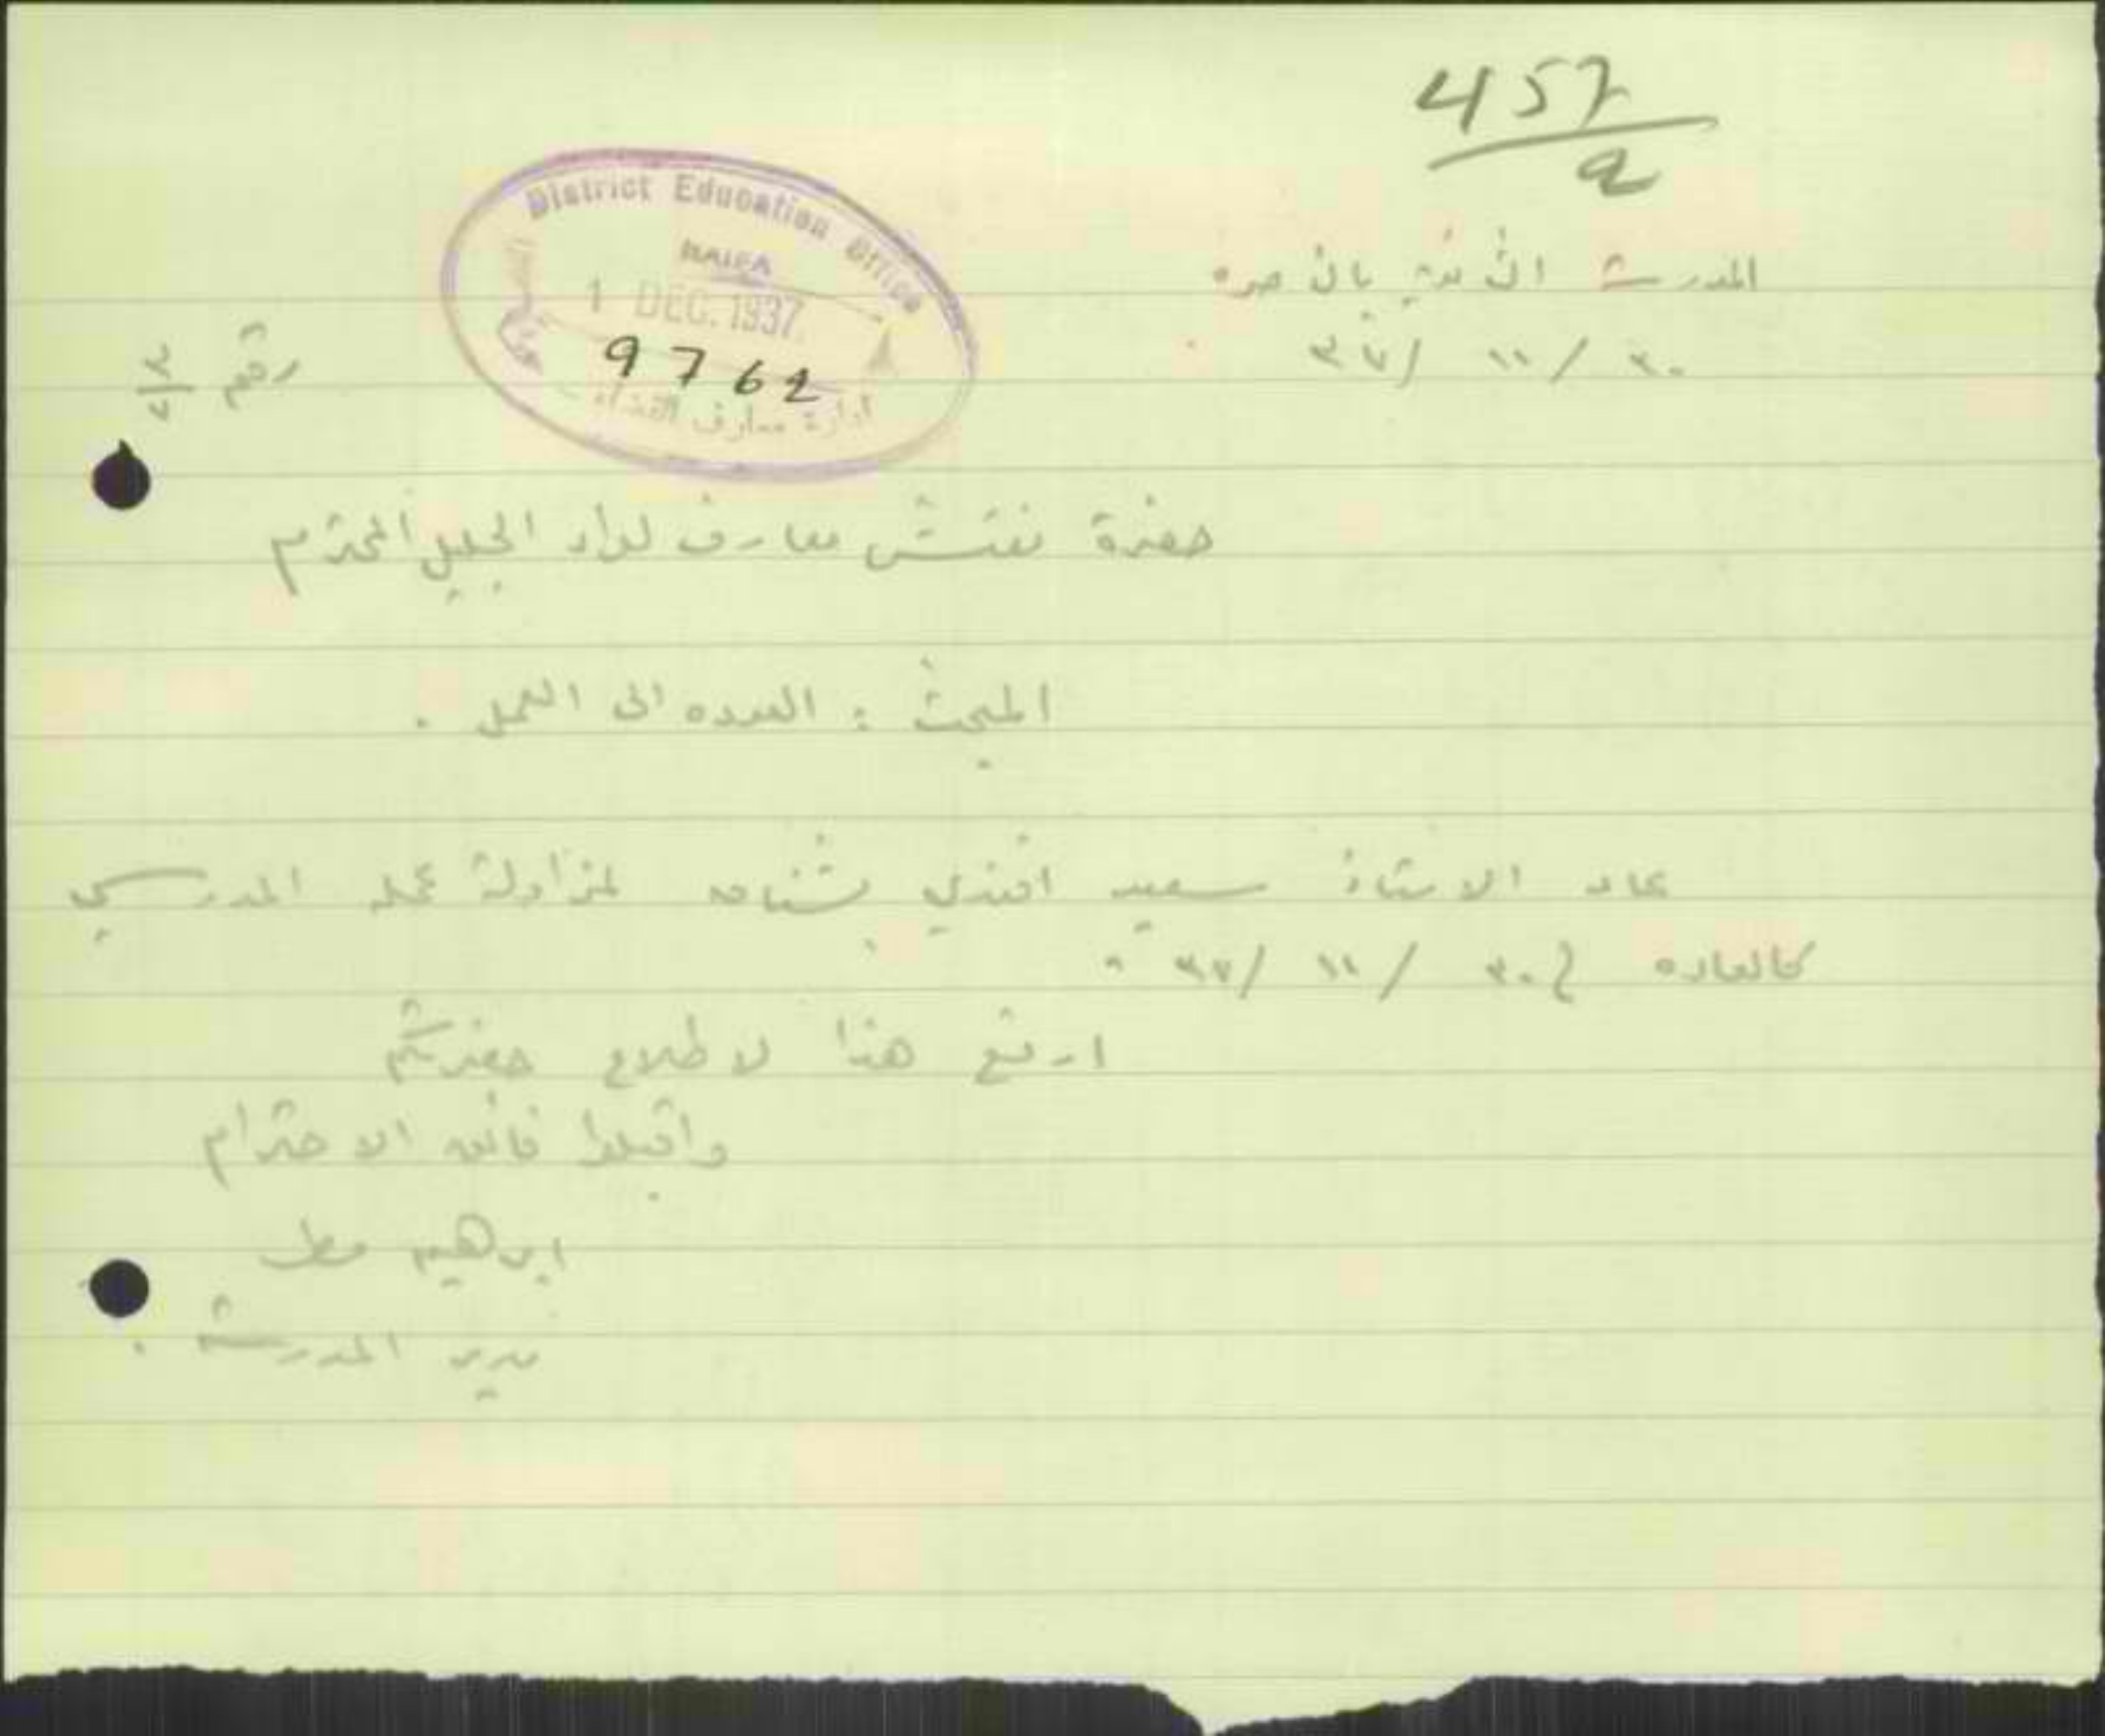 457
a
District Education Office
HAIFA
1 DEC. 1937
9762
ادارة معارف القضاء
المدرسة الثانوية بالناصره
٣٠ / ١١ / ٣٧
رقم
حضرة مفتش معارف لواء الجليل المحترم
المبحث : العوده الى العمل .
عاد الاستاذ سعيد افندي بشناق لمزاولة عمله المدرسي
كالعاده في ٣٠ / ١١ / ٣٧ .
ارفع هذا لاطلاع حضرتكم
واقبلوا فائق الاحترام
ابرهيم مطر
مدير المدرسة .